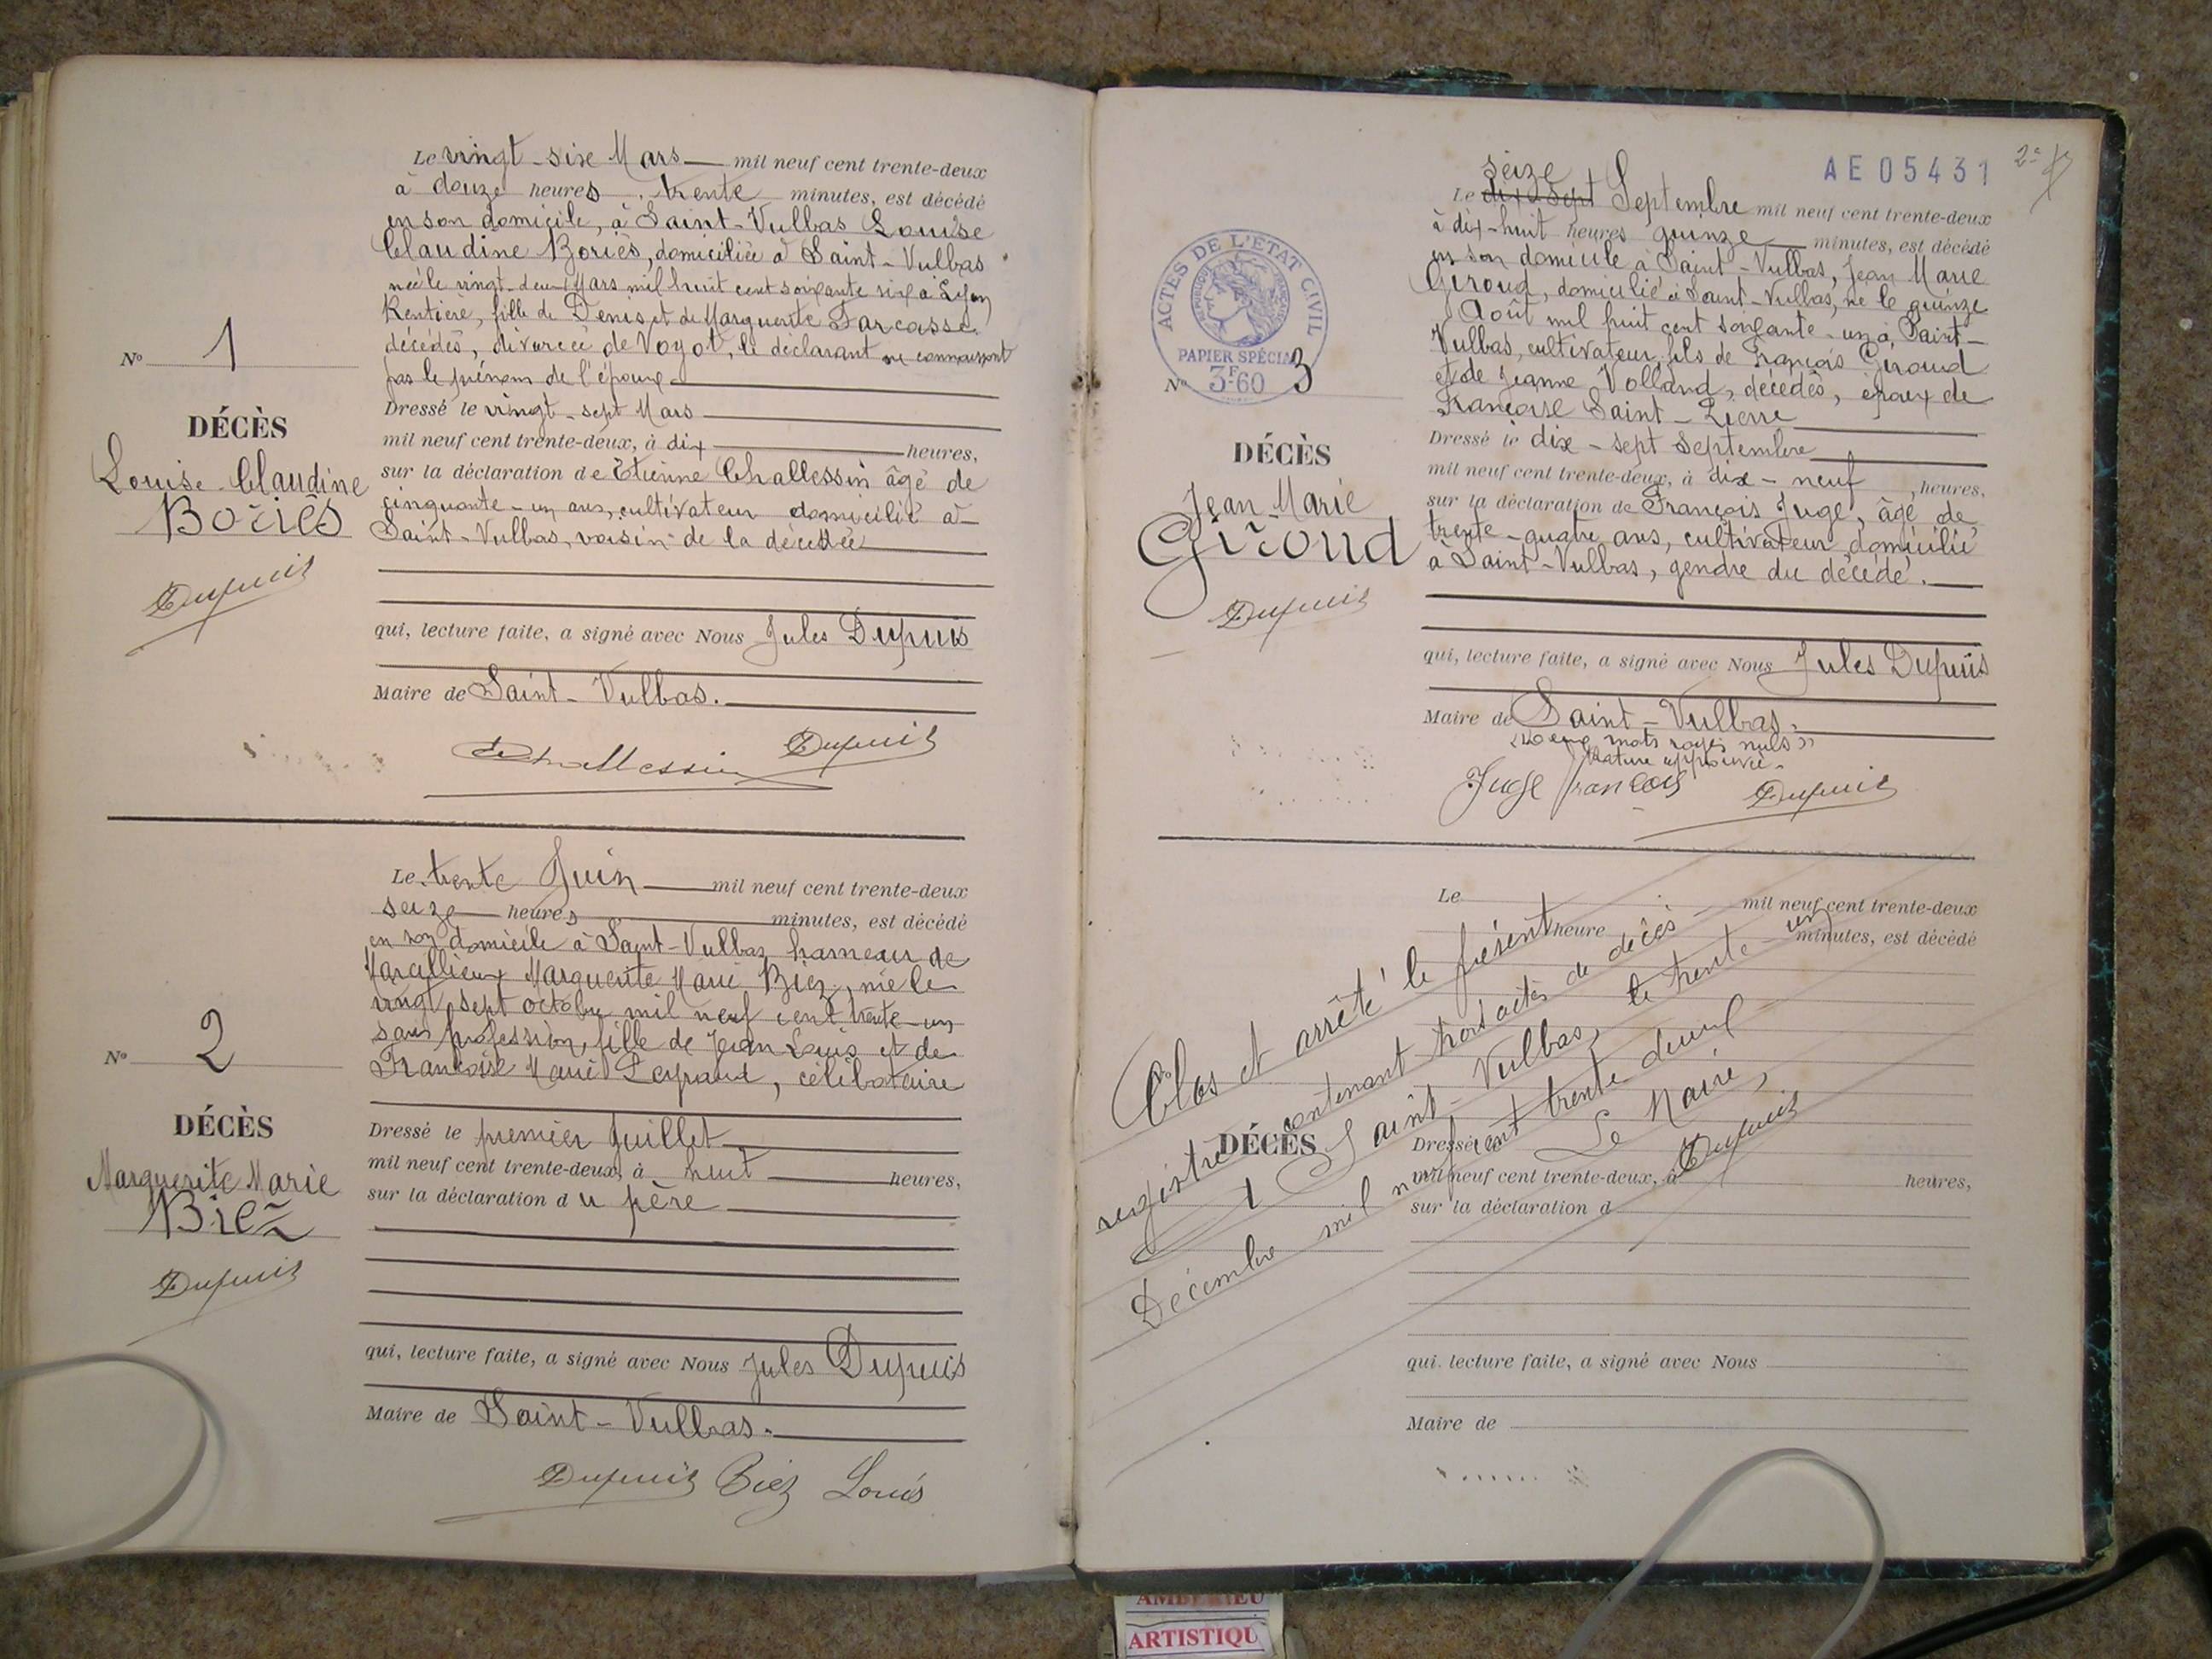 Le vingt-six Mars mil neuf cent trente-deux
à douze heures trente minutes, est décédé
en son domicile, à Saint-Vulbas Louise
Claudine Boriès, domiciliée à Saint-Vulbas
née le vingt-deux Mars mil huit cent soixante six à Lyon
Rentière, fille de Denis et de Marguerite Farcasse
décédés, divorcée de Voyot, le déclarant ne connaissant
pas le prénom de l'époux
Nº 1
DÉCÈS
Louise-Claudine
Boriès
Dupuis
Dressé le vingt-sept Mars
mil neuf cent trente-deux, à dix heures,
sur la déclaration de Etienne Challessin âgé de
cinquante-un ans, cultivateur domicilié à
Saint-Vulbas, voisin de la décédée
qui, lecture faite, a signé avec Nous Jules Dupuis
Maire de Saint-Vulbas.
Challessin Dupuis
Le trente Juin mil neuf cent trente-deux
seize heures minutes, est décédé
en son domicile à Saint-Vulbas hameau de
Marcillieux Marguerite Marie Biez, née le
vingt sept octobre mil neuf cent trente-un
sans profession, fille de Jean Louis et de
Françoise Marie Leyraud, célibataire
Nº 2
DÉCÈS
Marguerite Marie
Biez
Dupuis
Dressé le premier Juillet
mil neuf cent trente-deux, à huit heures,
sur la déclaration du père
qui, lecture faite, a signé avec Nous Jules Dupuis
Maire de Saint-Vulbas.
Dupuis Biez Louis
AE05431
2e
seize
Le dix-sept Septembre mil neuf cent trente-deux
à dix-huit heures quinze minutes, est décédé
en son domicile à Saint-Vulbas, Jean Marie
Giroud, domicilié à Saint-Vulbas, né le quinze
Août mil huit cent soixante-un à Saint-
Vulbas, cultivateur, fils de François Giroud
et de Jeanne Volland, décédés, époux de
Françoise Saint-Pierre
ACTES DE L'ETAT CIVIL
REPUBLIQUE FRANÇAISE
PAPIER SPÉCIAL
3F.60
Nº 3
DÉCÈS
Jean Marie
Giroud
Dupuis
Dressé le dix-sept septembre
mil neuf cent trente-deux, à dix-neuf heures,
sur la déclaration de François Juge, âgé de
trente-quatre ans, cultivateur domicilié
à Saint-Vulbas, gendre du décédé.
qui, lecture faite, a signé avec Nous Jules Dupuis
Maire de Saint-Vulbas.
"Deux mots rayés nuls"
Rature approuvée.
Juge françois Dupuis
Le mil neuf cent trente-deux
heure minutes, est décédé
Clos et arrêté le présent
registre contenant trois actes de décès
A Saint-Vulbas, le trente-un
Décembre mil neuf cent trente deux
Le Maire,
Dupuis
DÉCÈS
Dressé le
mil neuf cent trente-deux, à heures,
sur la déclaration d
qui, lecture faite, a signé avec Nous
Maire de
AMBERIEU
ARTISTIQU